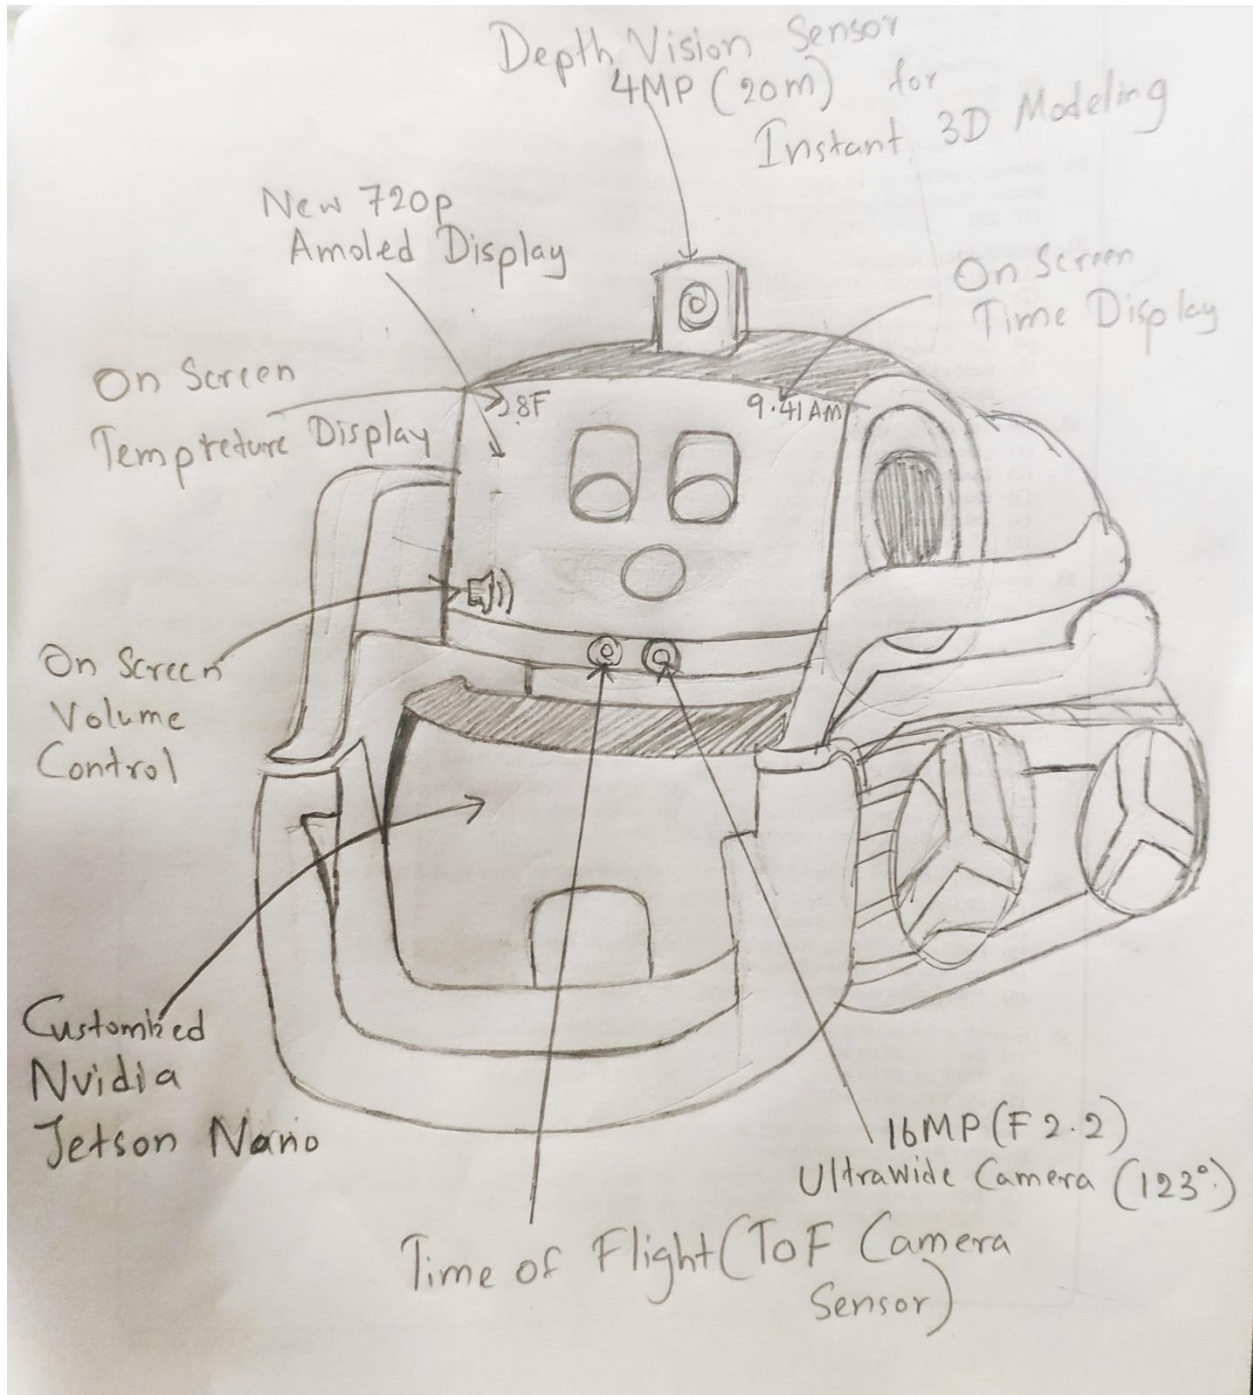 Depth Vision Sensor
4MP (20m) for
Instant 3D Modeling
New 720p
Amoled Display
On Screen
Time Display
On Screen
Tempreture Display
8F
9.41AM
On Screen
Volume
Control
Customized
Nvidia
Jetson Nano
16MP (F 2.2)
Ultrawide Camera (123°)
Time of Flight (ToF Camera
Sensor)